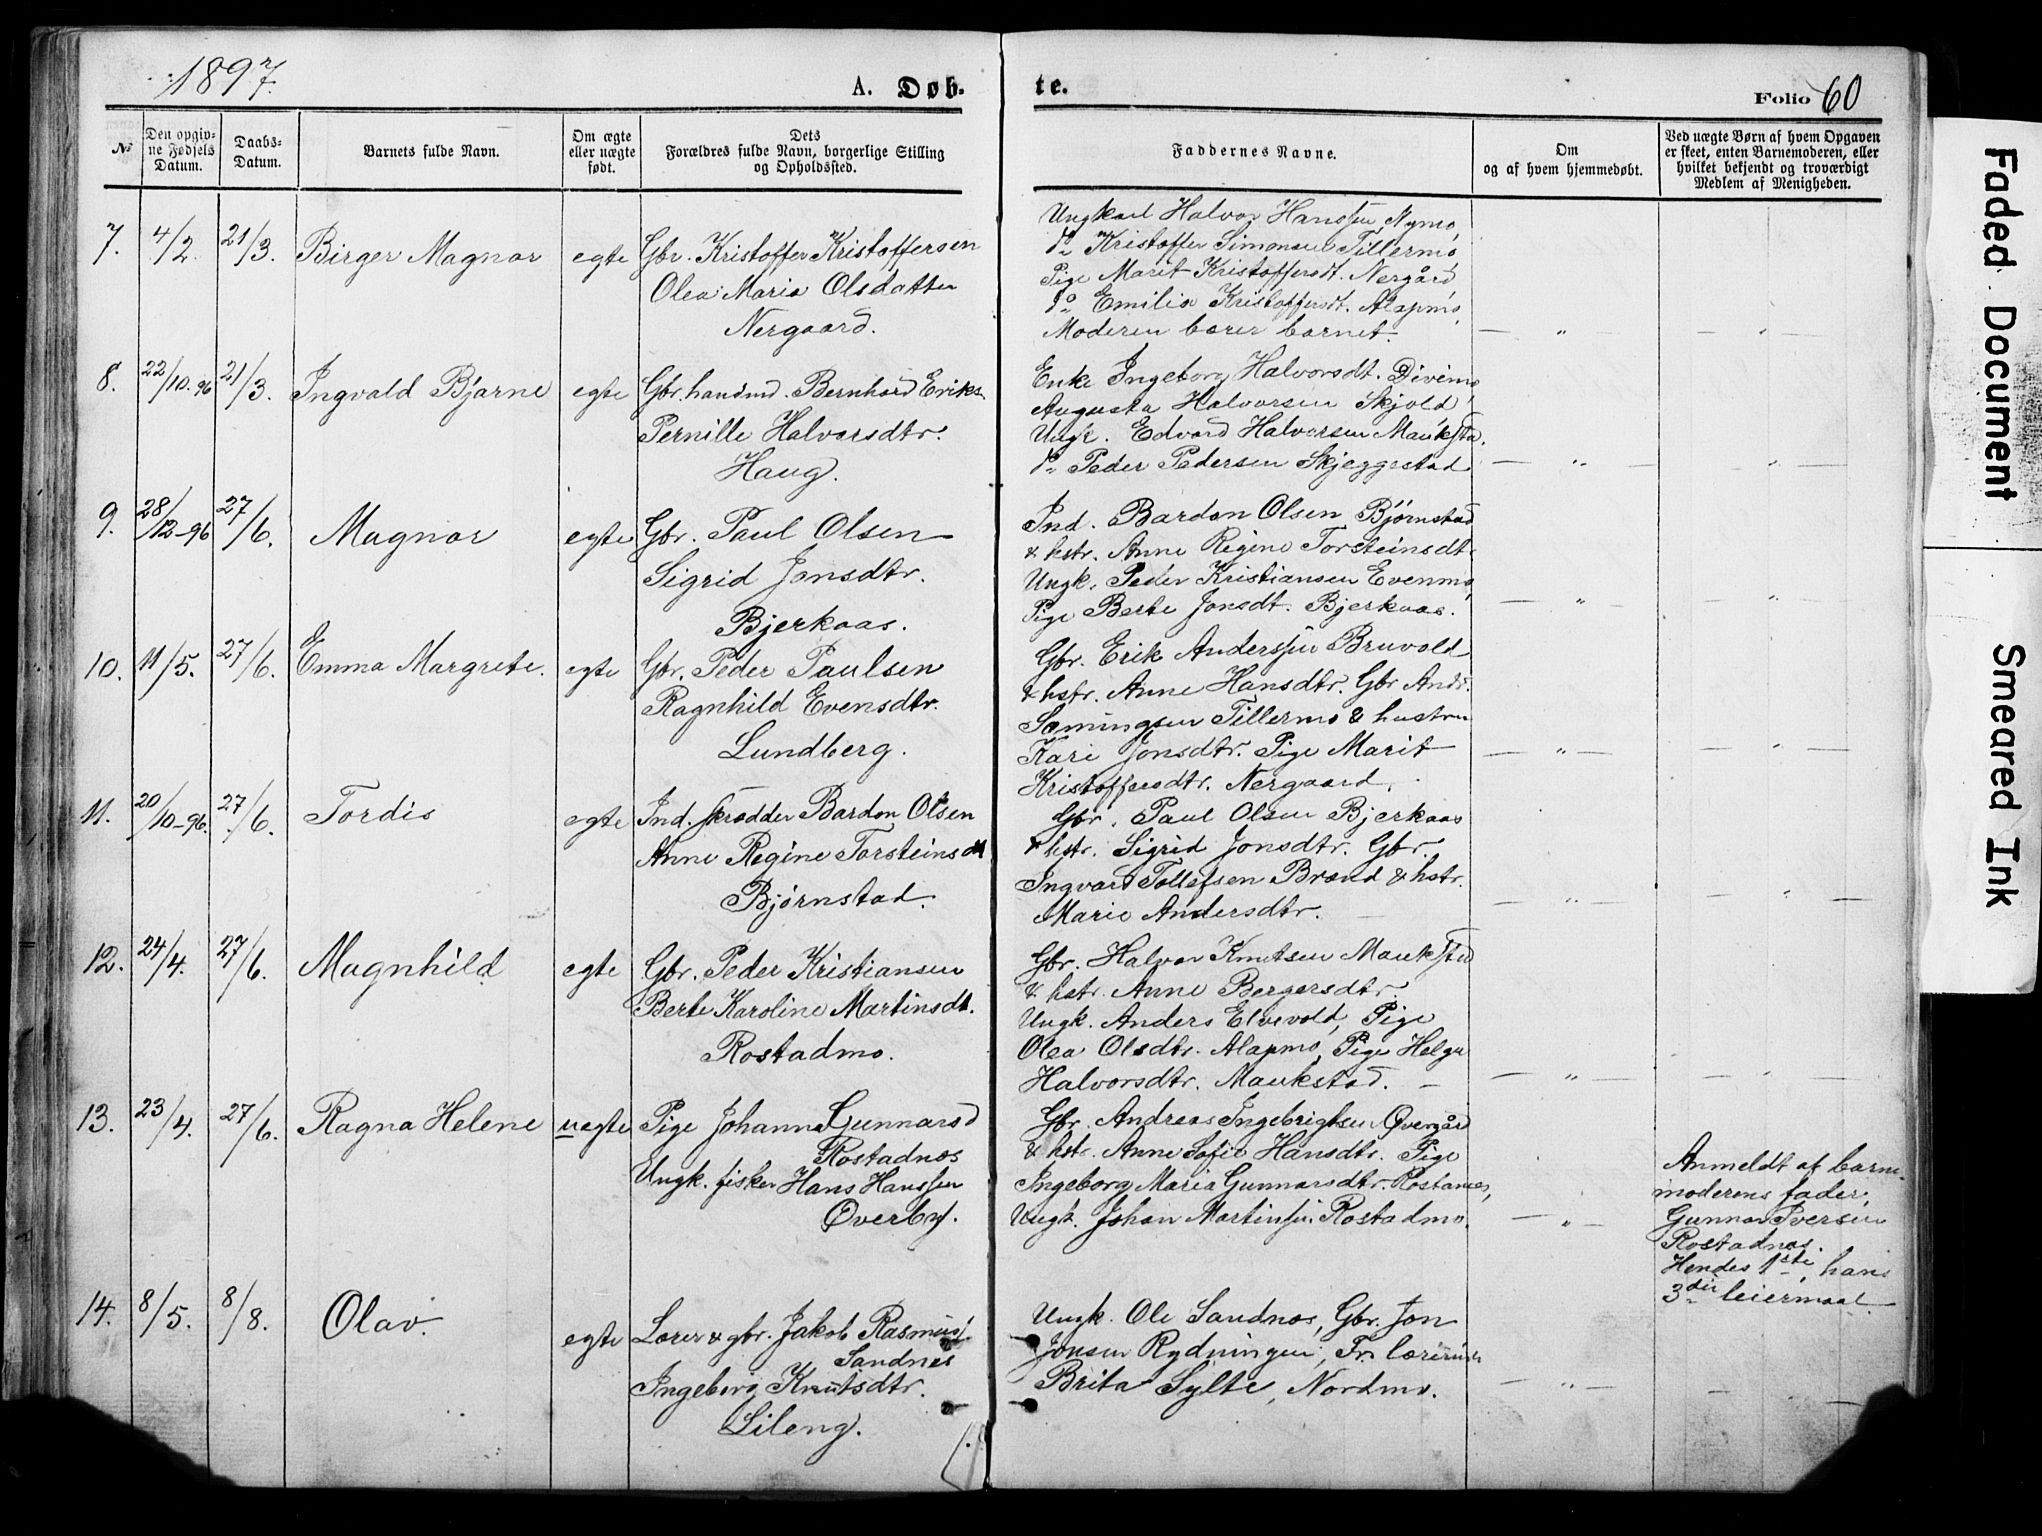 1897.
A. Døb-
te.
Folio 60
No
Den opgiv-
ne Fødsels
Datum.
Daabs-
Datum.
Barnets fulde Navn.
Om ægte
eller uægte
født.
Dets
Forældres fulde Navn, borgerlige Stilling
og Opholdssted.
Faddernes Navne.
Om
og af hvem hjemmedøbt.
Ved uægte Børn af hvem Opgaven
er skeet, enten Barnemoderen, eller
hvilket bekjendt og troværdigt
Medlem af Menigheden.
7. 4/2. 21/3. Birger Magnar egte Gbr. Kristoffer Kristoffersen
Olea Maria Olsdatter
Nergaard.
Ungkarl Halvor Hanssen Nymo,
do Kristoffer Simonsen Tillermo
Pige Marit Kristoffersdt. Nergård,
do Emilie Kristoffersdt. Alapmo,
Moderen bærer barnet. — „ — — „ —
8. 22/10.96 21/3. Ingvald Bjarne egte Gbr. handmd. Bernhard Eriks.
Pernille Halvorsdtr.
Haug.
Enke Ingeborg Halvorsdt. Divimo,
Augusta Halvorsen Skjold,
Ungk. Edvard Halvorsen Maukstad.
do Peder Pedersen Skjeggestad — „ — „
9. 28/12-96 27/6. Magnar egte Gbr. Paul Olsen
Sigrid Jonsdtr.
Bjerkaas.
Ind. Bardon Olsen Bjørnstad
& hstr. Anne Regine Torsteinsdt.
Ungk. Peder Kristiansen Evenmo,
Pige Berte Jonsdt. Bjerkaas. — „ — — „ —
10. 11/5. 27/6. Emma Margrete. egte Gbr. Peder Paulsen
Ragnhild Evensdtr.
Lundberg.
Gbr. Erik Anderssen Bruvold
& hstr. Anne Hansdtr. Gbr. Andr.
Sæmingsen Tillermo & hustru
Kari Jonsdtr. Pige Marit — „ — — „ —
Kristoffersdtr. Nergaard.
11. 20/10-96. 27/6. Tordis egte Ind. skrædder Bardon Olsen
Anne Regine Torsteinsdt
Bjørnstad.
Gbr. Paul Olsen Bjerkaas
& hstr. Sigrid Jonsdtr. Gbr.
Ingvart Tollefsen Brænd & hstr.
Marie Andersdtr. — „ — — „ —
12. 24/4. 27/6. Magnhild egte Gbr. Peder Kristiansen
Berte Karoline Martinsdt.
Rostadmo.
Gbr. Halvor Knutsen Maukstad
& hstr. Anne Bergersdtr.
Ungk. Anders Elvevold, Pige
Olea Olsdtr. Alapmo, Pige Helga
Halvorsdtr. Maukstad. — „ — — „ —
13. 23/4. 27/6. Ragna Helene uegte Pige Johanna Gunnarsd
Rostadnes
Ungk. fisker Hans Hanssen
Øverby.
Gbr. Andreas Ingebrigtsen Øvergård
& hstr. Anne Sofie Hansdtr. Pige
Ingeborg Maria Gunnarsdtr. Rostanes,
Ungk. Johan Martinsen Rostadmo. — „ —
Anmeldt af barne-
moderens fader,
Gunnar Iversen
Rostadnes.
Hendes 1ste, hans
3die leiermaal.
14. 8/5. 8/8. Olav. egte Lærer & gbr. Jakob Rasmus.
Sandnes
Ingeborg Knutsdtr.
Lileng.
Ungk. Ole Sandnes, Gbr. Jon
Jonsen Rydningen, Fr. lærerinde
Brita Sylte, Nordmo. — „ — — „ —
Faded Document
Smeared Ink